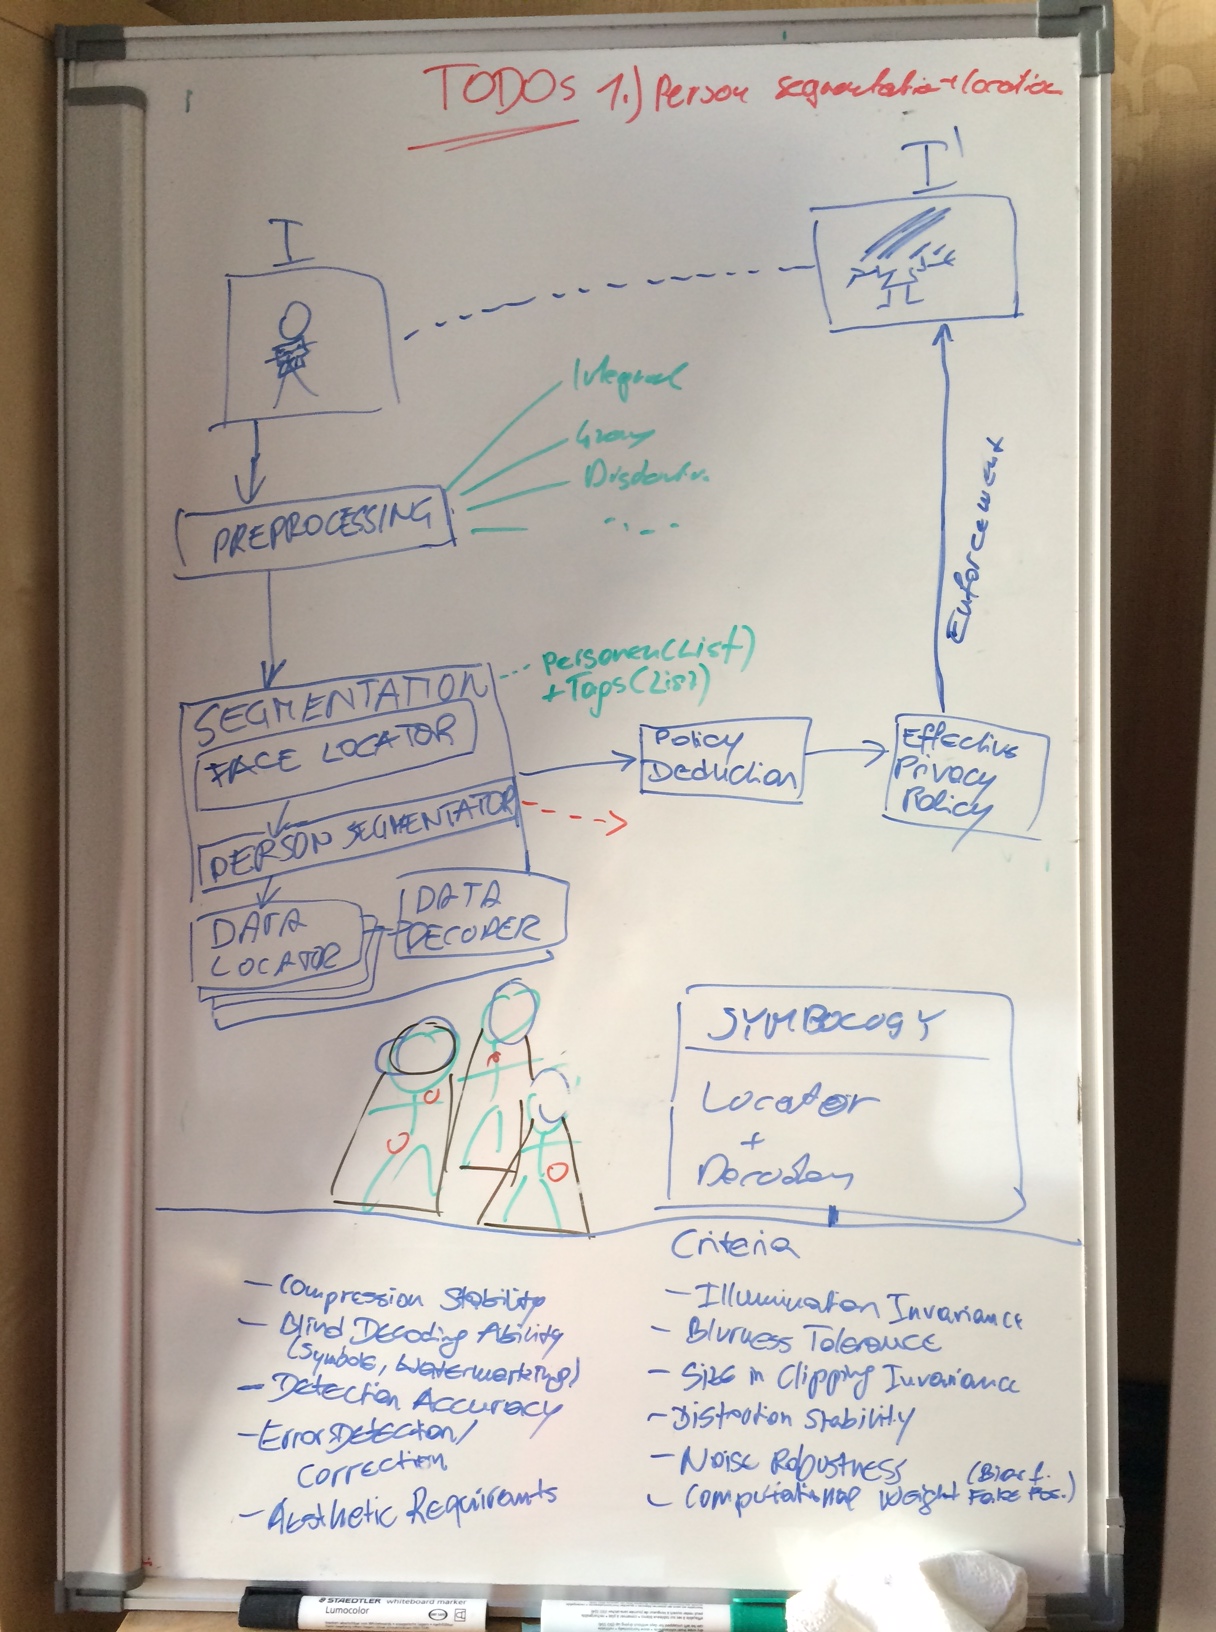 TODOs 1.) Person segmentation + location
I'
I
Integral
Gray
PREPROCESSING
Enforcement
Personen(List)
+ Tags(List)
SEGMENTATION
FACE LOCATOR
PERSON SEGMENTATOR
Policy
Deduction
Effective
Privacy
Policy
DATA
LOCATOR
DATA
DECODER
SYMBOLOGY
Locator
+
Criteria
- Compression Stability
- Blind Decoding Ability
(Symbols, Watermarking)
- Detection Accuracy
- Error Detection/
Correction
- Aesthetic Requirements
- Illumination Invariance
- Blurness Tolerance
- Size in Clipping Invariance
- Distortion Stability
- Noise Robustness
- Computational Weight
Pos.)
STAEDTLER whiteboard marker
Lumocolor